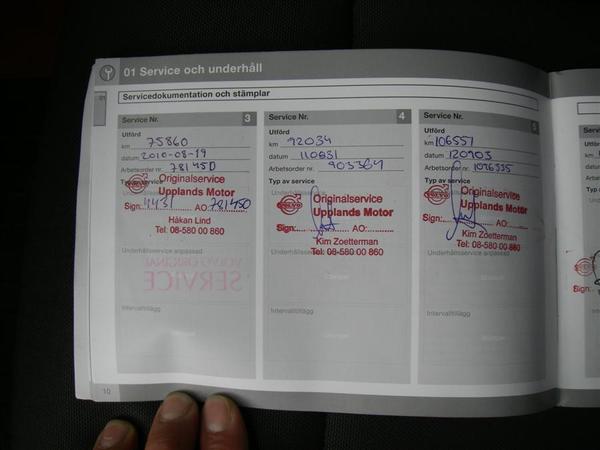 01 Service och underhåll
01
Servicedokumentation och stämplar
Service Nr. 3
Utförd
km 75860
datum 2010-08-19
Arbetsorder nr. 781450
Typ av service
Originalservice
Upplands Motor
Sign: 4431 AO: 781450
Håkan Lind
Tel: 08-580 00 860
Underhållsservice anpassad
VOLVO ORIGINAL
SERVICE
Intervalltillägg
Service Nr. 4
Utförd
km 92034
datum 110831
Arbetsorder nr. 903364
Typ av service
Originalservice
Upplands Motor
Sign: AO:
Kim Zoetterman
Tel: 08-580 00 860
Underhållsservice anpassad
Intervalltillägg
Service Nr. 5
Utförd
km 106551
datum 120903
Arbetsorder nr. 1026535
Typ av service
Originalservice
Upplands Motor
Sign: AO:
Kim Zoetterman
Tel: 08-580 00 860
Underhållsservice anpassad
Intervalltillägg
10
Sign: